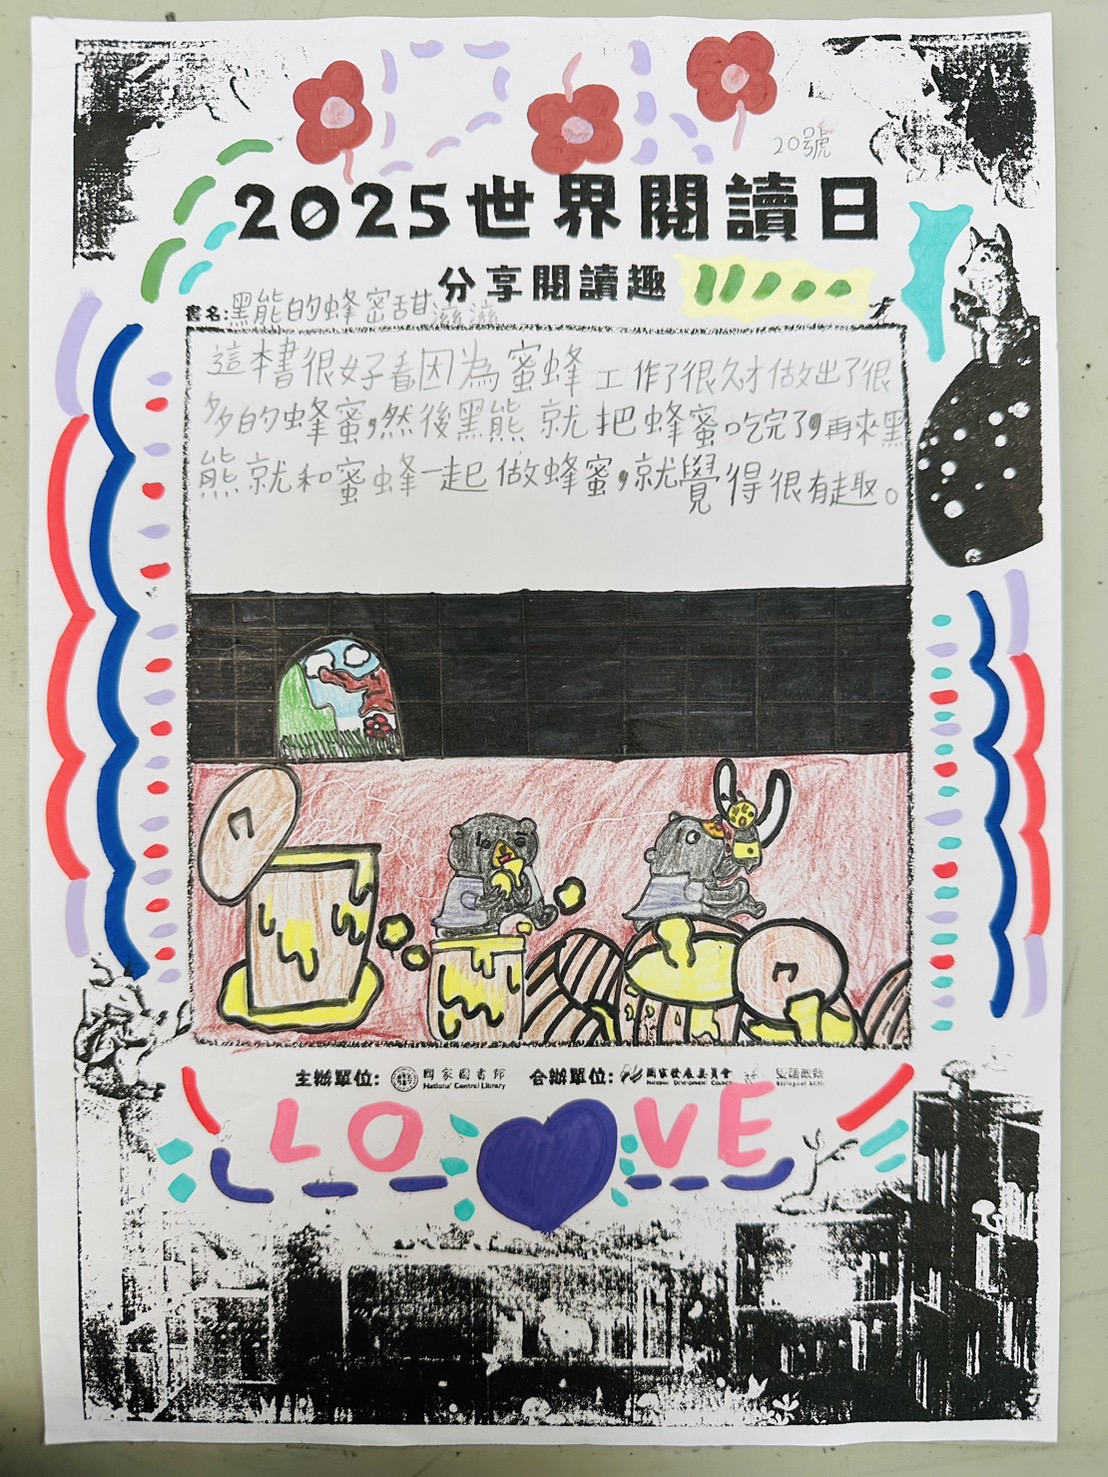 20號
2025世界閱讀日
分享閱讀趣
書名:黑熊的蜂密甜滋滋
這本書很好看因為蜜蜂工作了很久才做出了很
多的蜂蜜,然後黑熊就把蜂蜜吃完了,再來黑
熊就和蜜蜂一起做蜂蜜,就覺得很有趣。
主辦單位: 國家圖書館 National Central Library 合辦單位: 國家發展委員會 National Development Council
LOVE